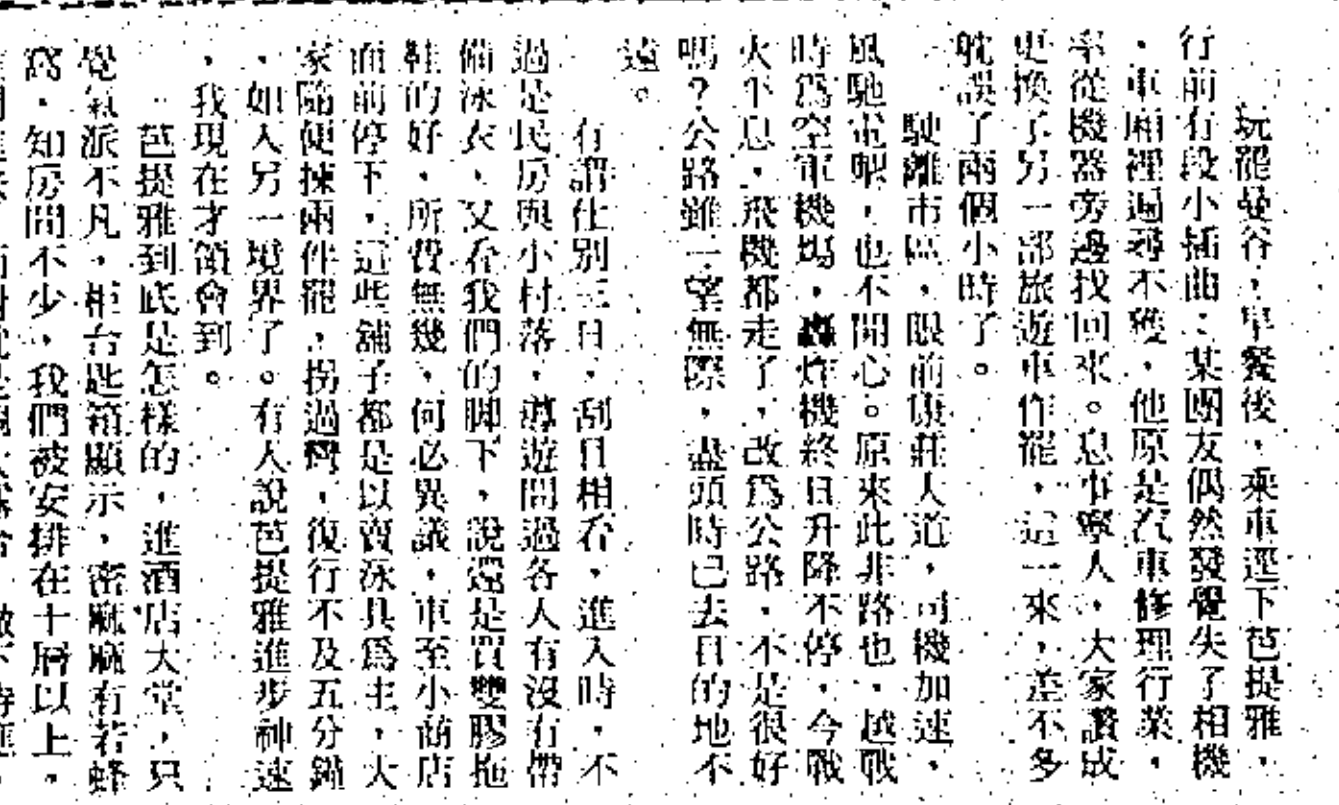 玩罷曼谷,早餐後,乘車逕下芭提雅,
行前有段小插曲:某團友偶然發覺失了相機
,車廂裡遍尋不獲,他原是汽車修理行業,
率從機器旁邊找回來。息事寧人,大家贊成
更換了另一部旅遊車作罷,這一來,差不多
躭誤了兩個小時了。
駛離市區,眼前康莊大道,司機加速,
風馳電掣,也不開心。原來此非路也,越戰
時爲空軍機場,轟炸機終日升降不停,今戰
火平息,飛機都走了,改爲公路,不是很好
嗎?公路雖一望無際,盡頭時已去目的地不
遠。
有謂仕別三日,刮目相看,進入時,不
過是民房與小村落,導遊問過各人有沒有帶
備泳衣、又看我們的脚下,說還是買雙膠拖
鞋的好,所費無幾,何必異議,車至小商店
面前停下,這些舖子都是以賣泳具爲主,大
家隨便揀兩件罷,拐過彎,復行不及五分鐘
,如入另一境界了。有人說芭提雅進步神速
,我現在才領會到。
芭提雅到底是怎樣的,進酒店大堂,只
覺氣派不凡,柜台匙箱顯示,密麻麻有若蜂
窩,知房間不少,我們被安排在十層以上,